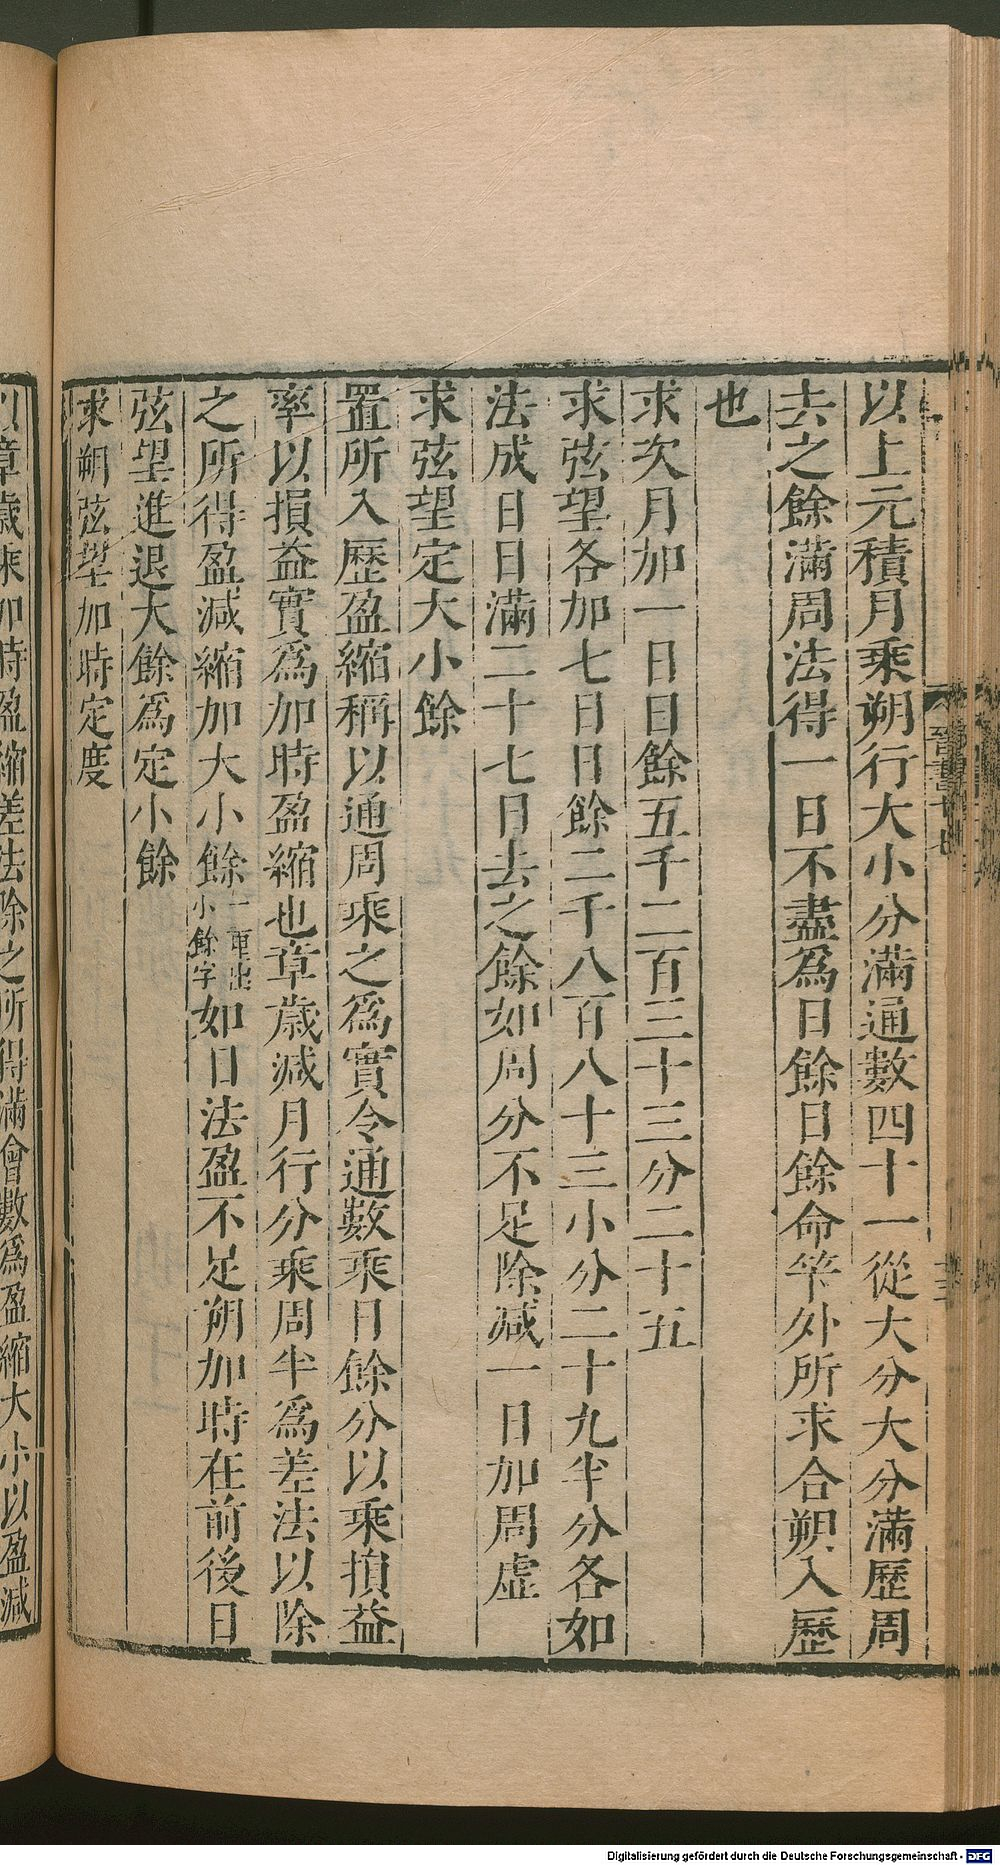 以上元積月乘朔行大小分滿通數四十一從大分大分滿歷周
去之餘滿周法得一日不盡為日餘日餘命筭外所求合朔入歷
也
求次月加一日日餘五千二百三十三分二十五
求弦望各加七日日餘二千八百八十三小分二十九半分各如
法成日日滿二十七日去之餘如周分不足除減一日加周虛
求弦望定大小餘
置所入歷盈縮稱以通周乘之為實令通數乘日餘分以乘損益
率以損益實為加時盈縮也章歲減月行分乘周半為差法以除
之所得盈減縮加大小餘一重出小餘字如日法盈不足朔加時在前後日
弦望進退大餘為定小餘
求朔弦望加時定度
以章歲乘加時盈縮差法除之所得滿會數為盈縮大小以盈減
晉書十七
十三
Digitalisierung gefördert durch die Deutsche Forschungsgemeinschaft - DFG